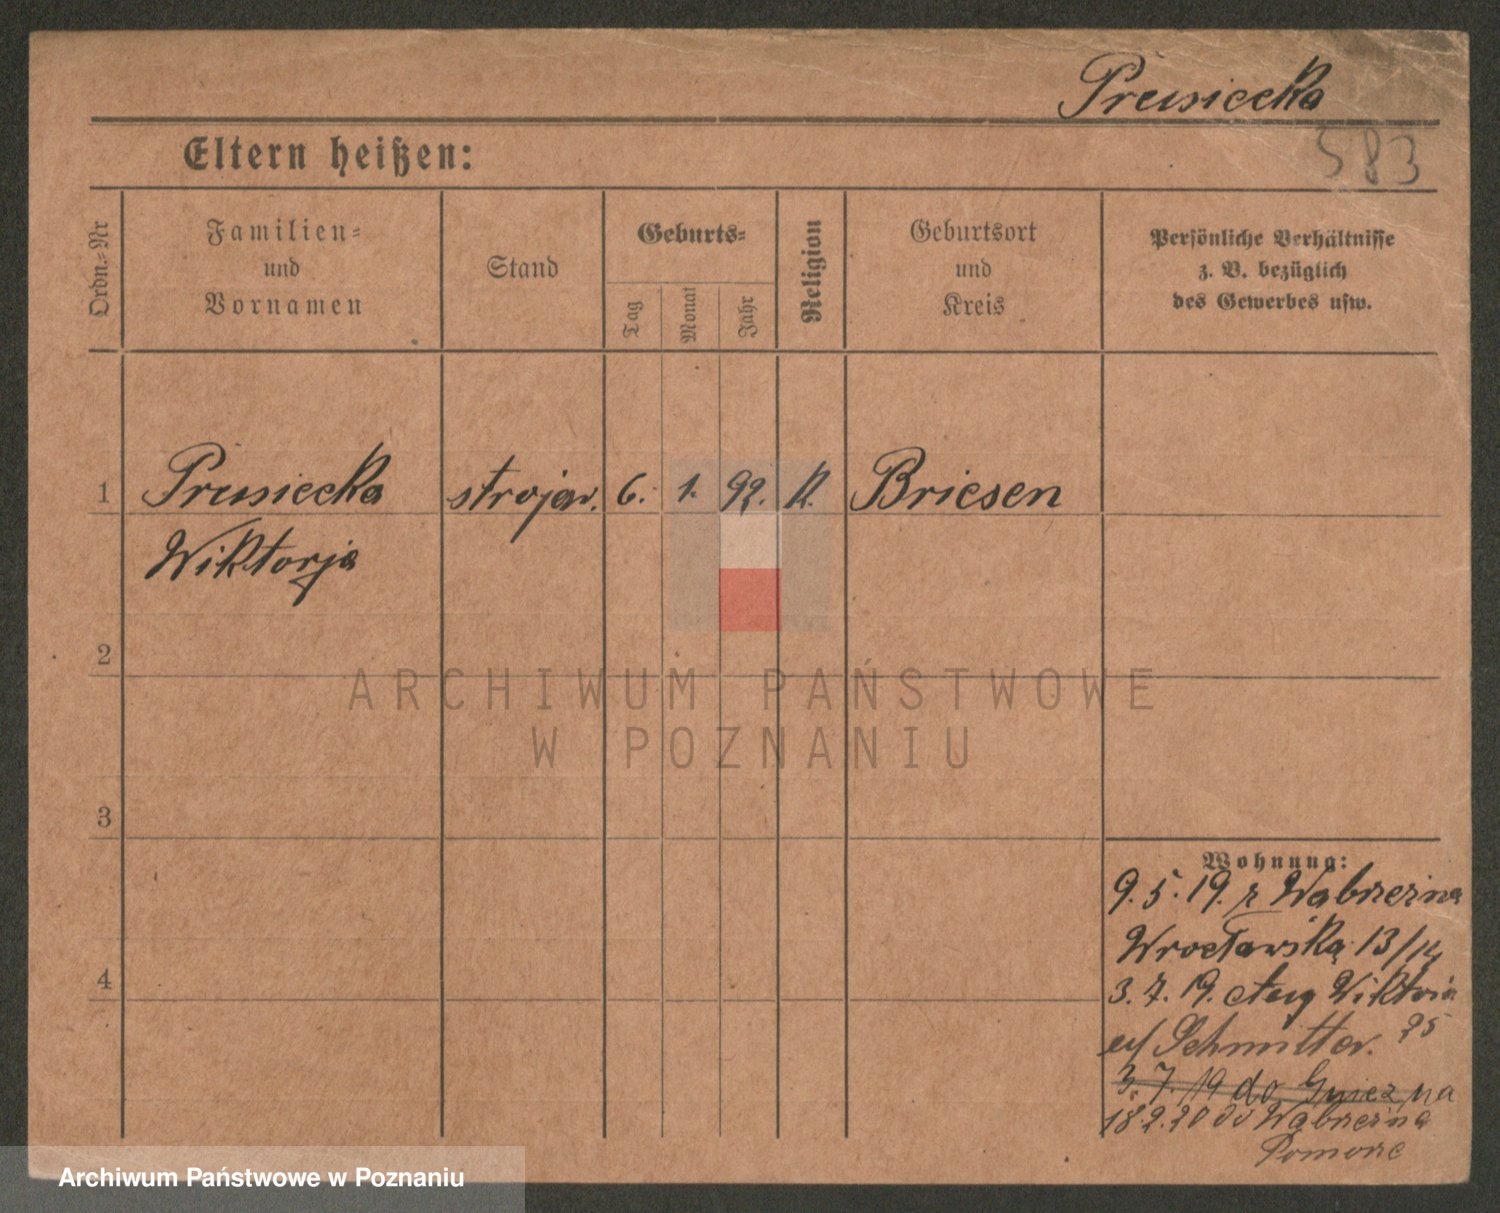 Prusiecka
583
Eltern heißen:
Ordn.-Nr
Familien-
und
Vornamen
Stand
Geburts-
Tag
Monat
Jahr
Religion
Geburtsort
und
Kreis
Persönliche Verhältnisse
z. B. bezüglich
des Gewerbes usw.
1 Prusiecka strojow. 6. 1. 92. K. Briesen
Wiktorja
2
ARCHIWUM PAŃSTWOWE
W POZNANIU
3
4
Wohnung:
9.5.19. z Wąbrzeźna
Wrocławska 13/14
3.7.19. Wiktoria 25
Schmitter.
3.7.19 do Gniezna
18.2.20 do Wąbrzeźna
Pomorze
Archiwum Państwowe w Poznaniu